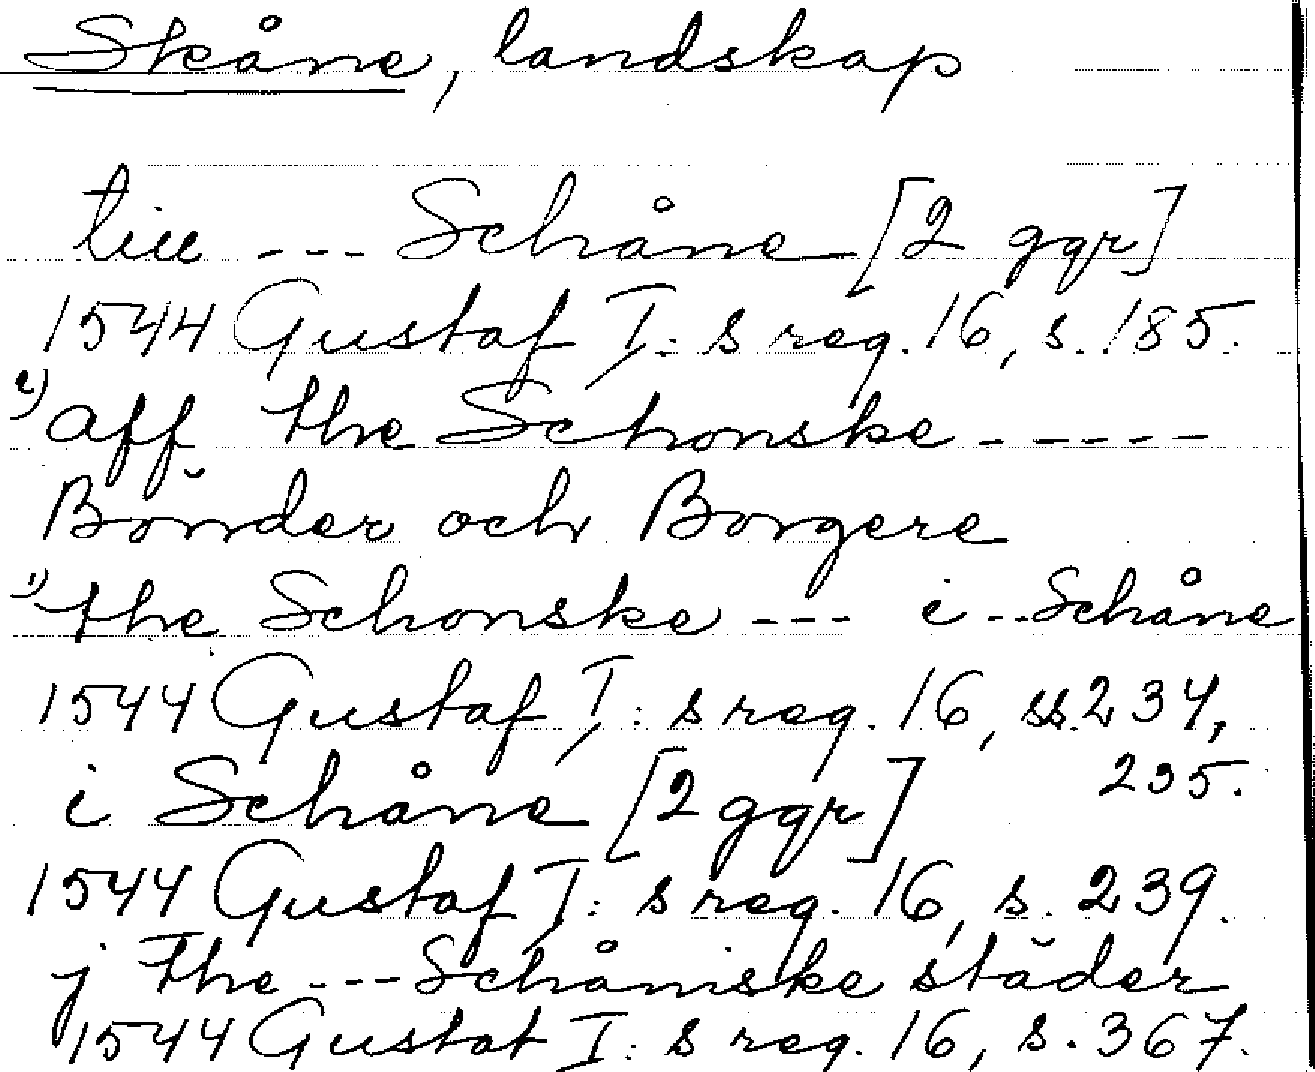 Skåne, landskap
till --- Schåne [2 ggr]
1544 Gustaf I: s reg. 16, s. 185.
2) aff the Schonske -----
Bönder och Borgere
1) the Schonske --- i -- Schåne
1544 Gustaf I: s reg. 16, ss. 234,
235.
i Schåne [2 ggr]
1544 Gustaf I: s reg. 16, s. 239.
j the --- Schåniske städer
1544 Gustaf I: s reg. 16, s. 367.